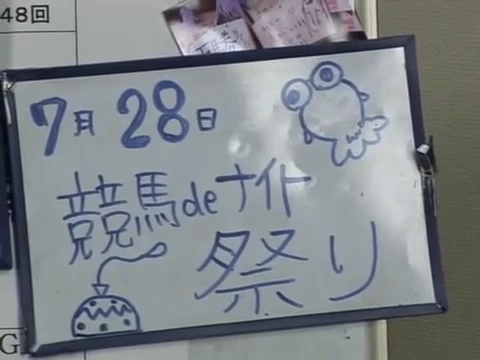 48回
7月28日
競馬deナイト
祭り
G